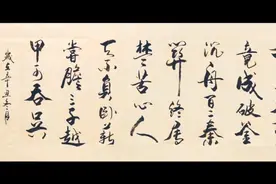 竟成破釜
沉舟百二秦
關終屬
楚苦心人
天不負臥薪
嘗膽三千越
甲可吞吳